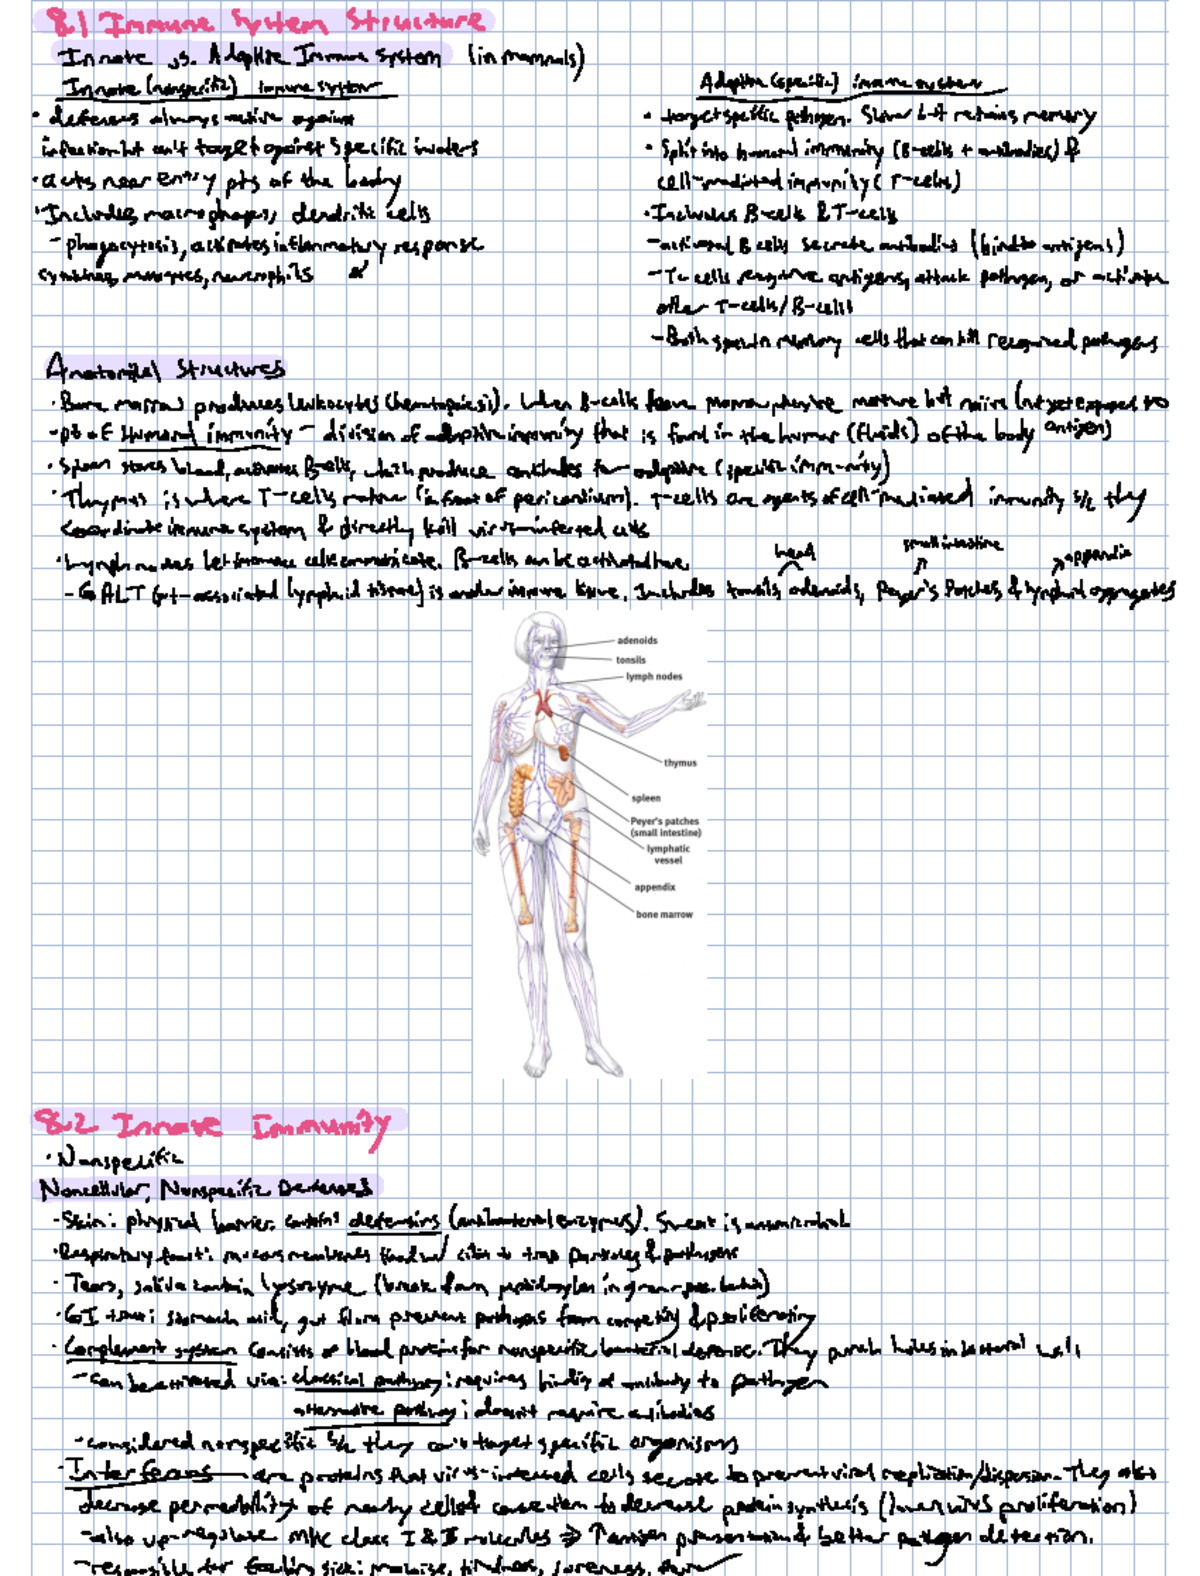 8.1 Immune System Structure
Innate vs. Adaptive Immune System (in mammals)
Innate (nonspecific) immune system
• defenses always active against
infection but can't target against specific invaders
• acts near entry pts of the body
• Includes macrophages, dendritic cells
- phagocytosis, activates inflammatory response
Adaptive (specific) immune system
• target specific pathogen. Slow but retains memory
• Split into humoral immunity (B-cells + antibodies) &
cell-mediated immunity (T-cells)
• Includes B-cells & T-cells
- activated B cells secrete antibodies (bind to antigens)
- T-cells recognize antigens, attack pathogen, or activate
other T-cells/B-cells
- Both memory cells that can kill recognized pathogens
Anatomical Structures
• Bone marrow produces leukocytes (hematopoiesis). When B-cells leave marrow they're mature but naïve (not yet exposed to
antigen)
- pt of Humoral immunity - division of adaptive immunity that is found in the humor (fluids) of the body
• Spleen stores blood, activates B-cells, which produce antibodies for adaptive (specific immunity)
• Thymus is where T-cells mature (in front of pericardium). T-cells are agents of cell-mediated immunity b/c they
coordinate immune system & directly kill virus-infected cells
• Lymph nodes let immune cells communicate. B-cells can be activated here.
head
small intestine
appendix
- GALT (gut-associated lymphoid tissue) is another immune tissue. Includes tonsils, adenoids, Peyer's Patches & lymphoid aggregates
adenoids
tonsils
lymph nodes
thymus
spleen
Peyer's patches
(small intestine)
lymphatic
vessel
appendix
bone marrow
8.2 Innate Immunity
• Nonspecific
Noncellular, Nonspecific Defenses
- Skin: physical barrier, contains defensins (antibacterial enzymes). Sweat is antimicrobial
• Respiratory tract: mucous membranes lined w/ cilia to trap particles & pathogens
• Tears, saliva contain lysozyme (break down peptidoglycan in gram-pos. bacteria)
• GI tract: stomach acid, gut flora prevent pathogens from competing & proliferating
• Complement system consists of blood proteins for nonspecific bacterial defense. They punch holes in bacterial walls
- can be activated via: classical pathway: requires binding of antibody to pathogen
alternative pathway: doesn't require antibodies
- considered nonspecific b/c they can't target specific organisms
• Interferons are proteins that virus-infected cells secrete to prevent viral replication/dispersion. They also
decrease permeability of nearby cells & cause them to decrease protein synthesis (lower virus proliferation)
- also up-regulate MHC class I & II molecules ⇒ ↑ antigen presentation & better pathogen detection.
- responsible for feeling sick: malaise, tiredness, soreness,